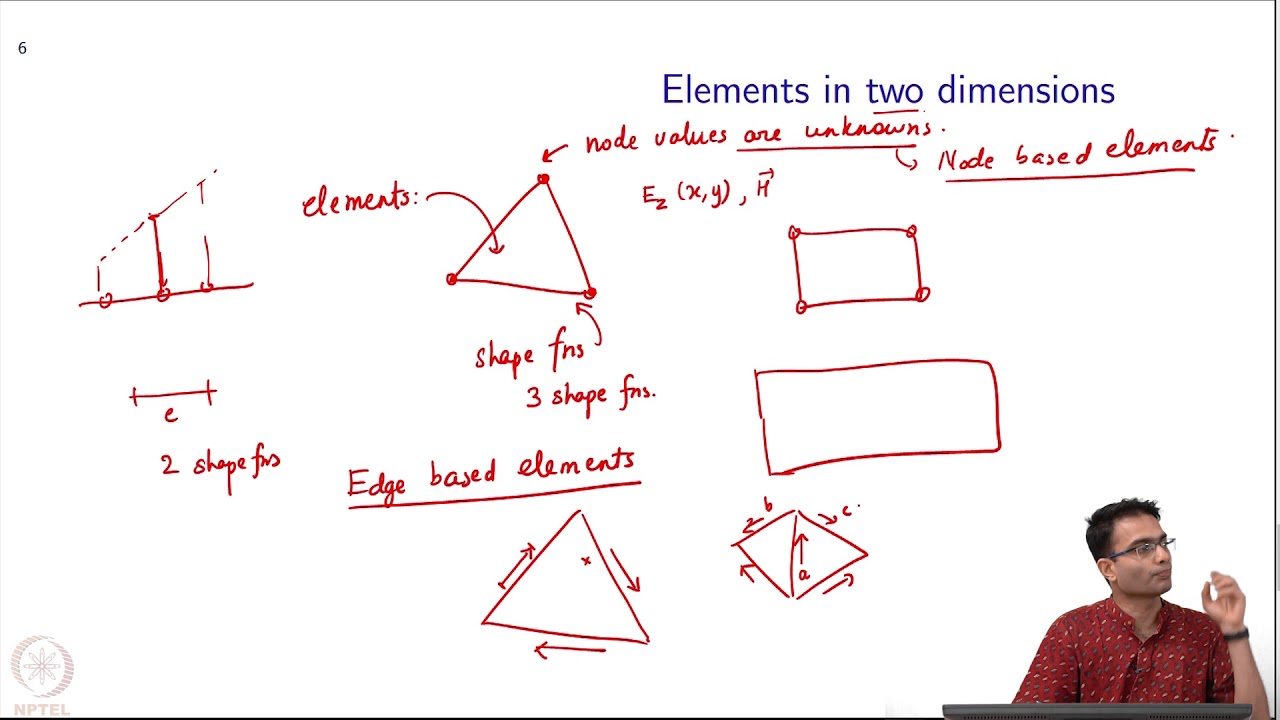 6
Elements in two dimensions
node values are unknowns.
Node based elements.
elements:
E_z (x,y), H⃗
shape fns
3 shape fns.
e
2 shape fns
Edge based elements
x
b
c.
a
NPTEL